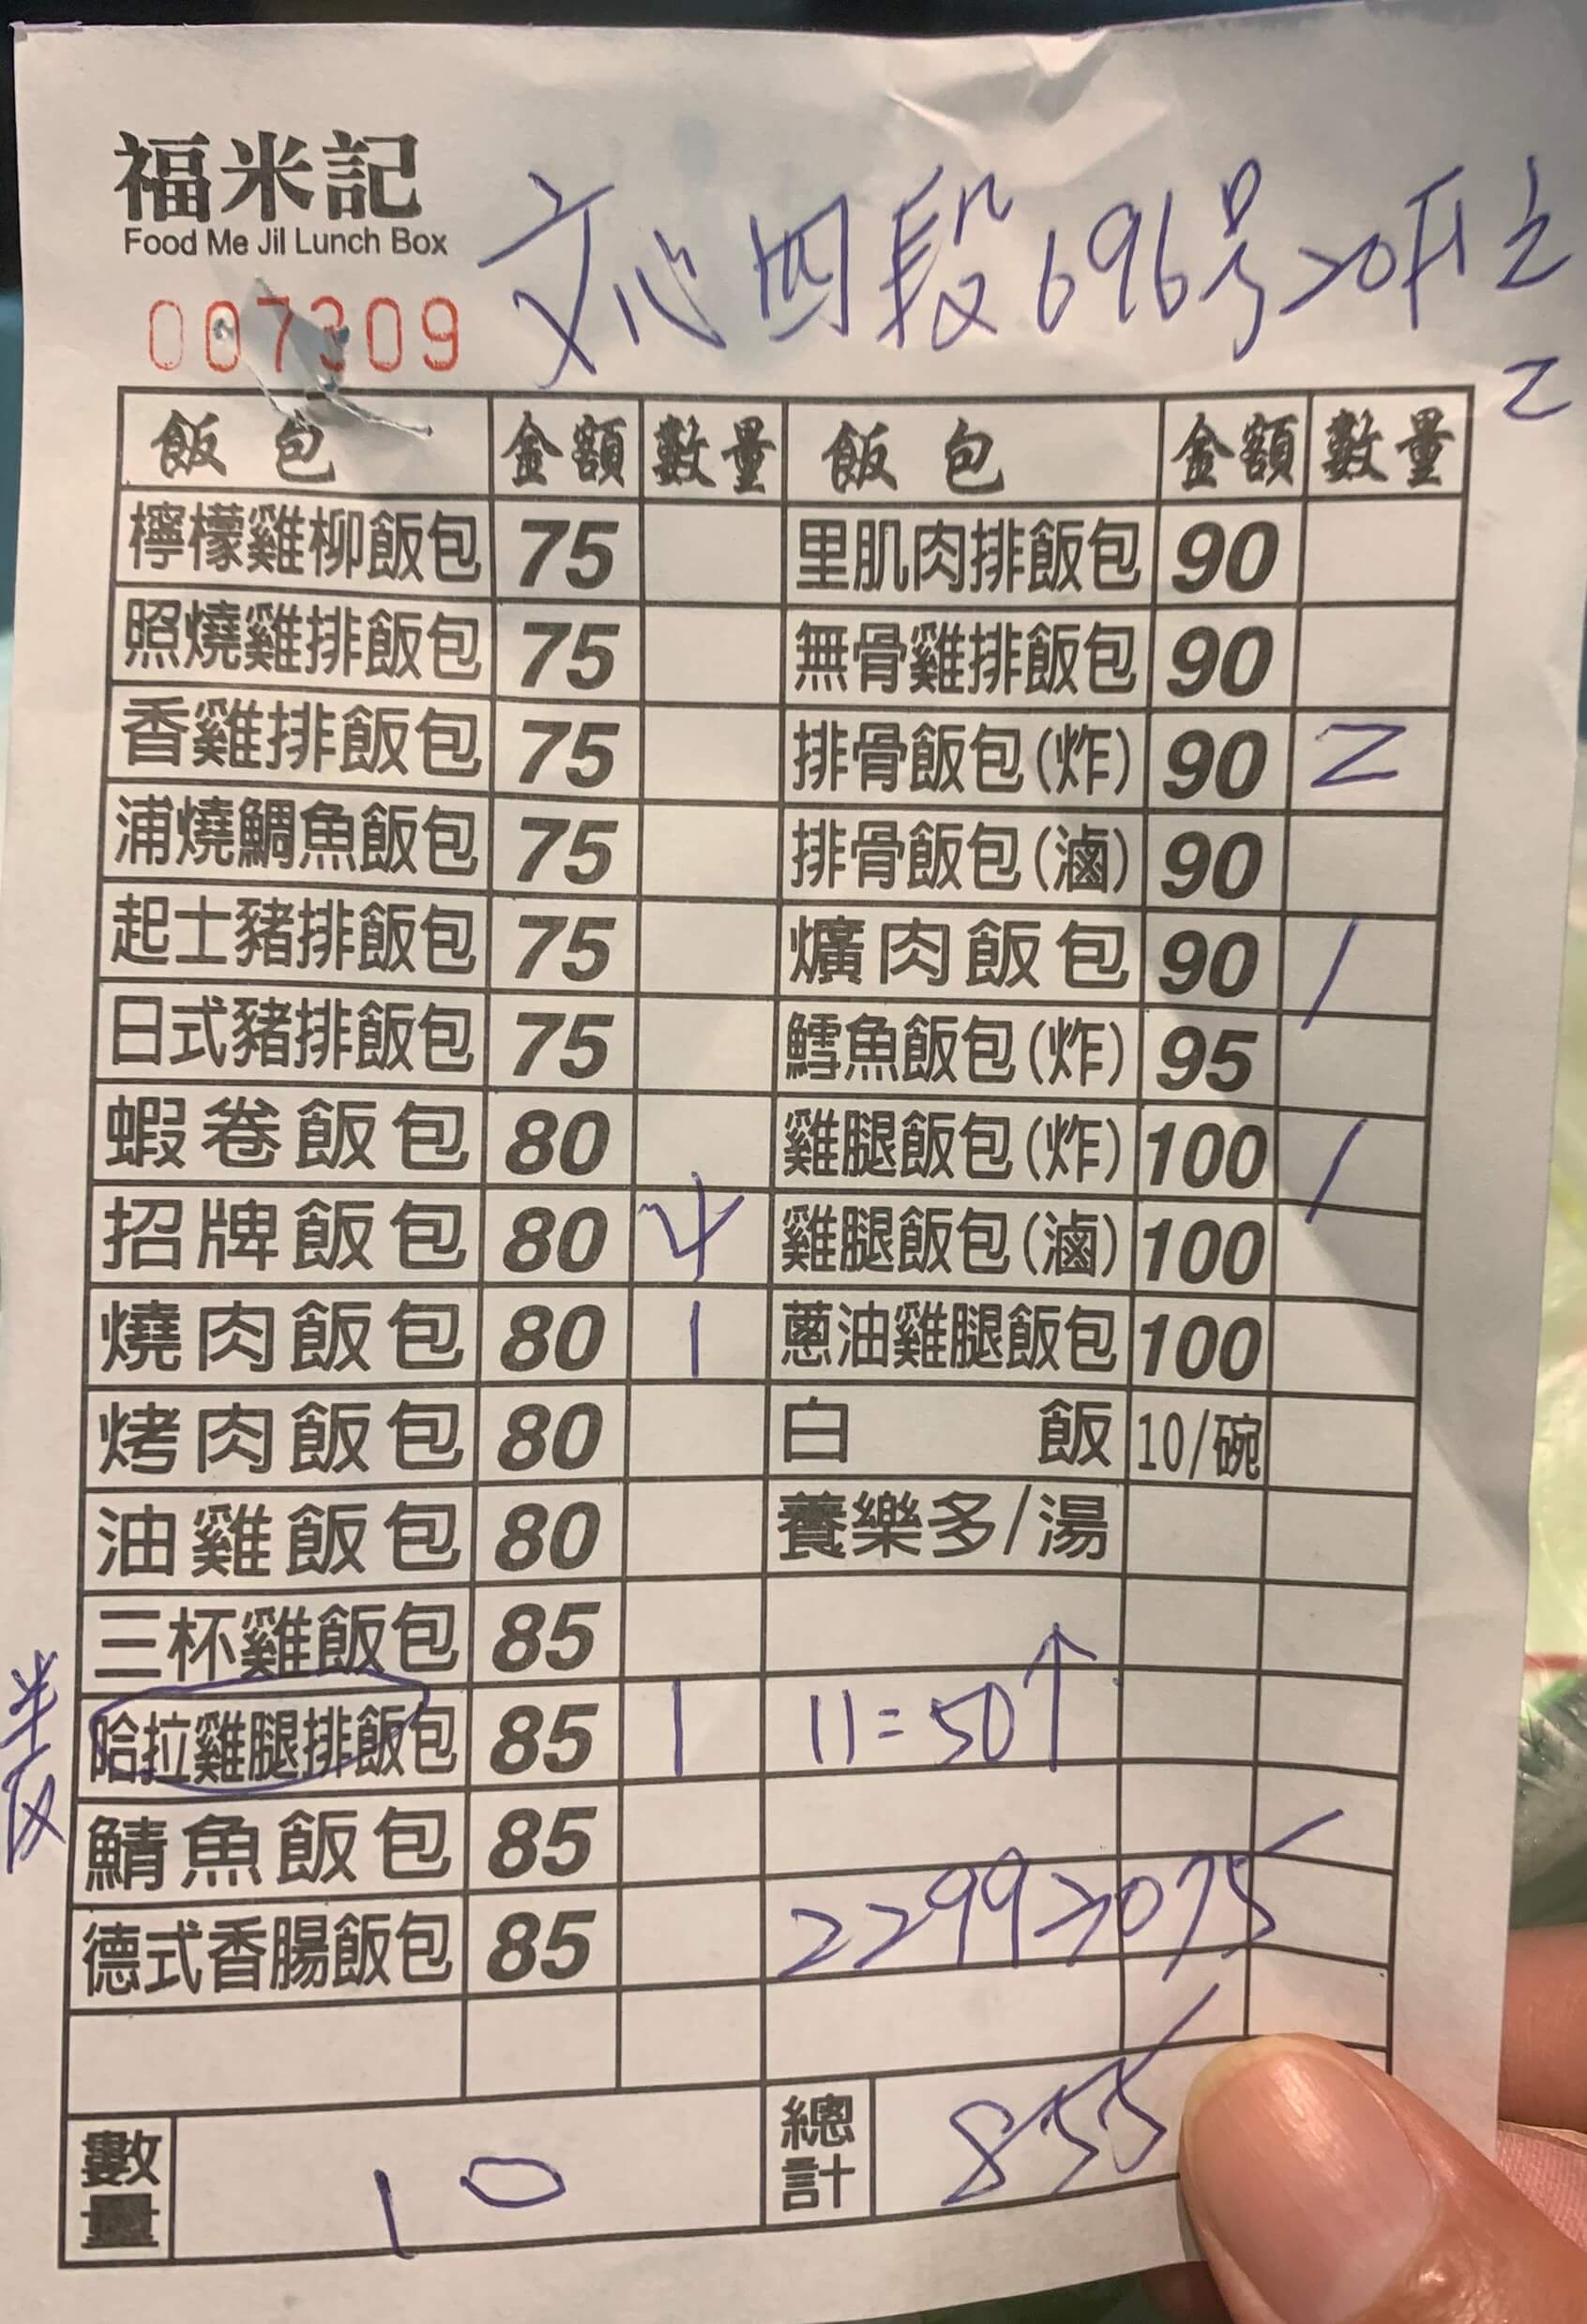 福米記
Food Me Jil Lunch Box
文心四段696号20F之
2
007309
飯包 金額 數量 飯包 金額 數量
檸檬雞柳飯包 75 里肌肉排飯包 90
照燒雞排飯包 75 無骨雞排飯包 90
香雞排飯包 75 排骨飯包(炸) 90 2
浦燒鯛魚飯包 75 排骨飯包(滷) 90
起士豬排飯包 75 爌肉飯包 90 1
日式豬排飯包 75 鱈魚飯包(炸) 95
蝦卷飯包 80 雞腿飯包(炸) 100 1
招牌飯包 80 4 雞腿飯包(滷) 100
燒肉飯包 80 1 蔥油雞腿飯包 100
烤肉飯包 80 白飯 10/碗
油雞飯包 80 養樂多/湯
三杯雞飯包 85
半飯 哈拉雞腿排飯包 85 1 11=50↑
鯖魚飯包 85
德式香腸飯包 85 22992075
數量 10 總計 855